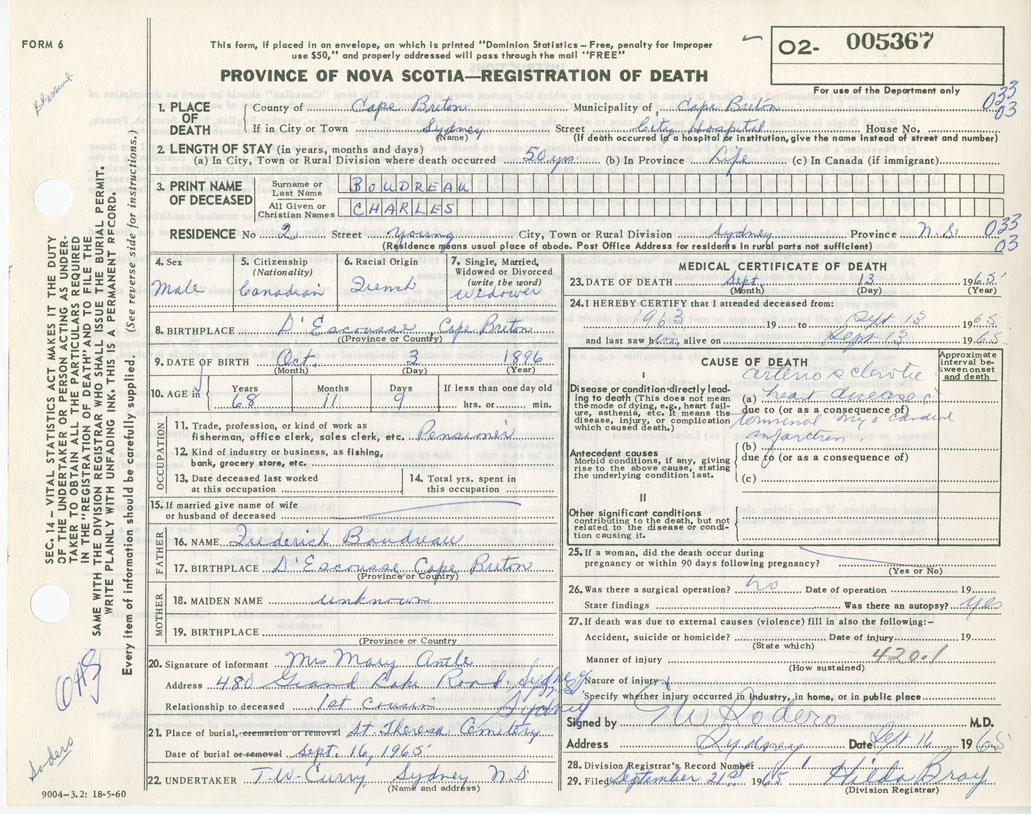 FORM 6
This form, if placed in an envelope, on which is printed "Dominion Statistics – Free, penalty for improper
use $50," and properly addressed will pass through the mail "FREE"
O2- 005367
PROVINCE OF NOVA SCOTIA—REGISTRATION OF DEATH
For use of the Dominion Bureau only
033
03
1. PLACE OF DEATH
County of Cape Breton Municipality of Cape Breton
If in City or Town Sydney Street City Hospital House No.
(Name) (If death occurred in a hospital or institution, give the name instead of street and number)
2. LENGTH OF STAY (in years, months and days)
(a) In City, Town or Rural Division where death occurred 50 yrs. (b) In Province Life (c) In Canada (if immigrant)
3. PRINT NAME OF DECEASED
Surname or Last Name BOUDREAU
All Given or Christian Names CHARLES
RESIDENCE No 2 Street Young City, Town or Rural Division Sydney Province N.S. 033
03
(Residence means usual place of abode. Post Office Address for residents in rural parts not sufficient)
4. Sex Male
5. Citizenship (Nationality) Canadian
6. Racial Origin French
7. Single, Married, Widowed or Divorced (write the word) Widower
8. BIRTHPLACE D'Escousse, Cape Breton
(Province or Country)
9. DATE OF BIRTH Oct. 3 1896
(Month) (Day) (Year)
10. AGE in Years 68 Months 11 Days 9 If less than one day old hrs. or min.
OCCUPATION
11. Trade, profession, or kind of work as
fisherman, office clerk, sales clerk, etc. Pensioner
12. Kind of industry or business, as fishing,
bank, grocery store, etc.
13. Date deceased last worked
at this occupation
14. Total yrs. spent in
this occupation
15. If married give name of wife
or husband of deceased
FATHER
16. NAME Frederick Boudreau
17. BIRTHPLACE D'Escousse Cape Breton
(Province or Country)
MOTHER
18. MAIDEN NAME unknown
19. BIRTHPLACE
(Province or Country)
20. Signature of informant Mrs Mary Antle
Address 480 Grand Lake Road. Sydney
Relationship to deceased 1st Cousin Sydney
21. Place of burial, cremation or removal St Theresa Cemetery
Date of burial or removal Sept. 16, 1965
22. UNDERTAKER T.W. Curry, Sydney N.S.
(Name and address)
MEDICAL CERTIFICATE OF DEATH
23. DATE OF DEATH Sept. 13 1965
(Month) (Day) (Year)
24. I HEREBY CERTIFY that I attended deceased from:
1963 19 to Sept 13 1965
and last saw him alive on Sept 13 1965
CAUSE OF DEATH
Approximate interval between onset and death
I
Disease or condition directly leading to death (This does not mean the mode of dying, e.g., heart failure, asthenia, etc. It means the disease, injury, or complication which caused death.
arteriosclerotic
(a) heart disease c
due to (or as a consequence of)
terminal myocardial
infarction
Antecedent causes
Morbid conditions, if any, giving rise to the above cause, stating the underlying condition last.
(b)
due to (or as a consequence of)
(c)
II
Other significant conditions
contributing to the death, but not related to the disease or condition causing it.
25. If a woman, did the death occur during
pregnancy or within 90 days following pregnancy?
(Yes or No)
26. Was there a surgical operation? no Date of operation 19
State findings Was there an autopsy? yes
27. If death was due to external causes (violence) fill in also the following:–
Accident, suicide or homicide? Date of injury 19
(State which)
Manner of injury 420.1
(How sustained)
Nature of injury
Specify whether injury occurred in industry, in home, or in public place
Signed by G W Sodero M.D.
Address Sydney Date Sept 16 1965
28. Division Registrar's Record Number
29. Filed September 21st 1965 Hilda Bray
(Division Registrar)
SEC. 14 – VITAL STATISTICS ACT MAKES IT THE DUTY
OF THE UNDERTAKER OR PERSON ACTING AS UNDER-
TAKER TO OBTAIN ALL THE PARTICULARS REQUIRED
IN THE "REGISTRATION OF DEATH" AND TO FILE THE
SAME WITH THE DIVISION REGISTRAR WHO SHALL ISSUE THE BURIAL PERMIT.
WRITE PLAINLY WITH UNFADING INK. THIS IS A PERMANENT RECORD.
Every item of information should be carefully supplied. (See reverse side for instructions.)
Sodero
9004-3.2: 18-5-60